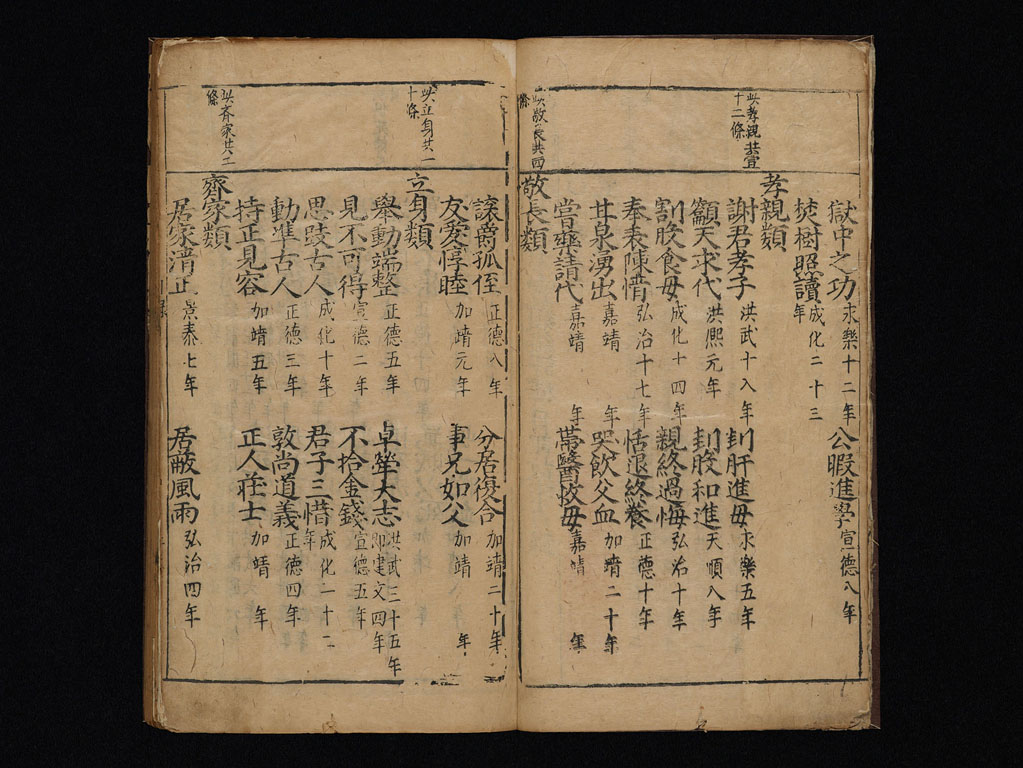 獄中之功永樂十二年 公暇進學宣德八年
焚樹照讀成化二十三年
此孝親共壹十二條
孝親類
謝君孝子洪武十八年 刲肝進母永樂五年
籲天求代洪熙元年 刲股和進天順八年
割股食母成化十四年 親終過悔弘治十年
奉表陳情弘治十七年 恬退終養正德十年
甘泉湧出嘉靖年 哭飲父血加靖二十年
嘗藥請代嘉靖年 帶醫救母嘉靖年
此敬長共四條
敬長類
讓爵孤侄正德八年 分居復合加靖二十年
友愛惇睦加靖元年 事兄如父加靖年
此立身共一十條
立身類
舉動端整正德五年 卓犖大志洪武三十五年即建文四年
見不可得宣德二年 不拾金錢宣德五年
思跂古人成化十年 君子三惜成化一十二年
動準古人正德三年 敦尚道義正德四年
持正見容加靖五年 正人莊士加靖年
此齊家共二條
齊家類
居家清正景泰七年 居蔽風雨弘治四年